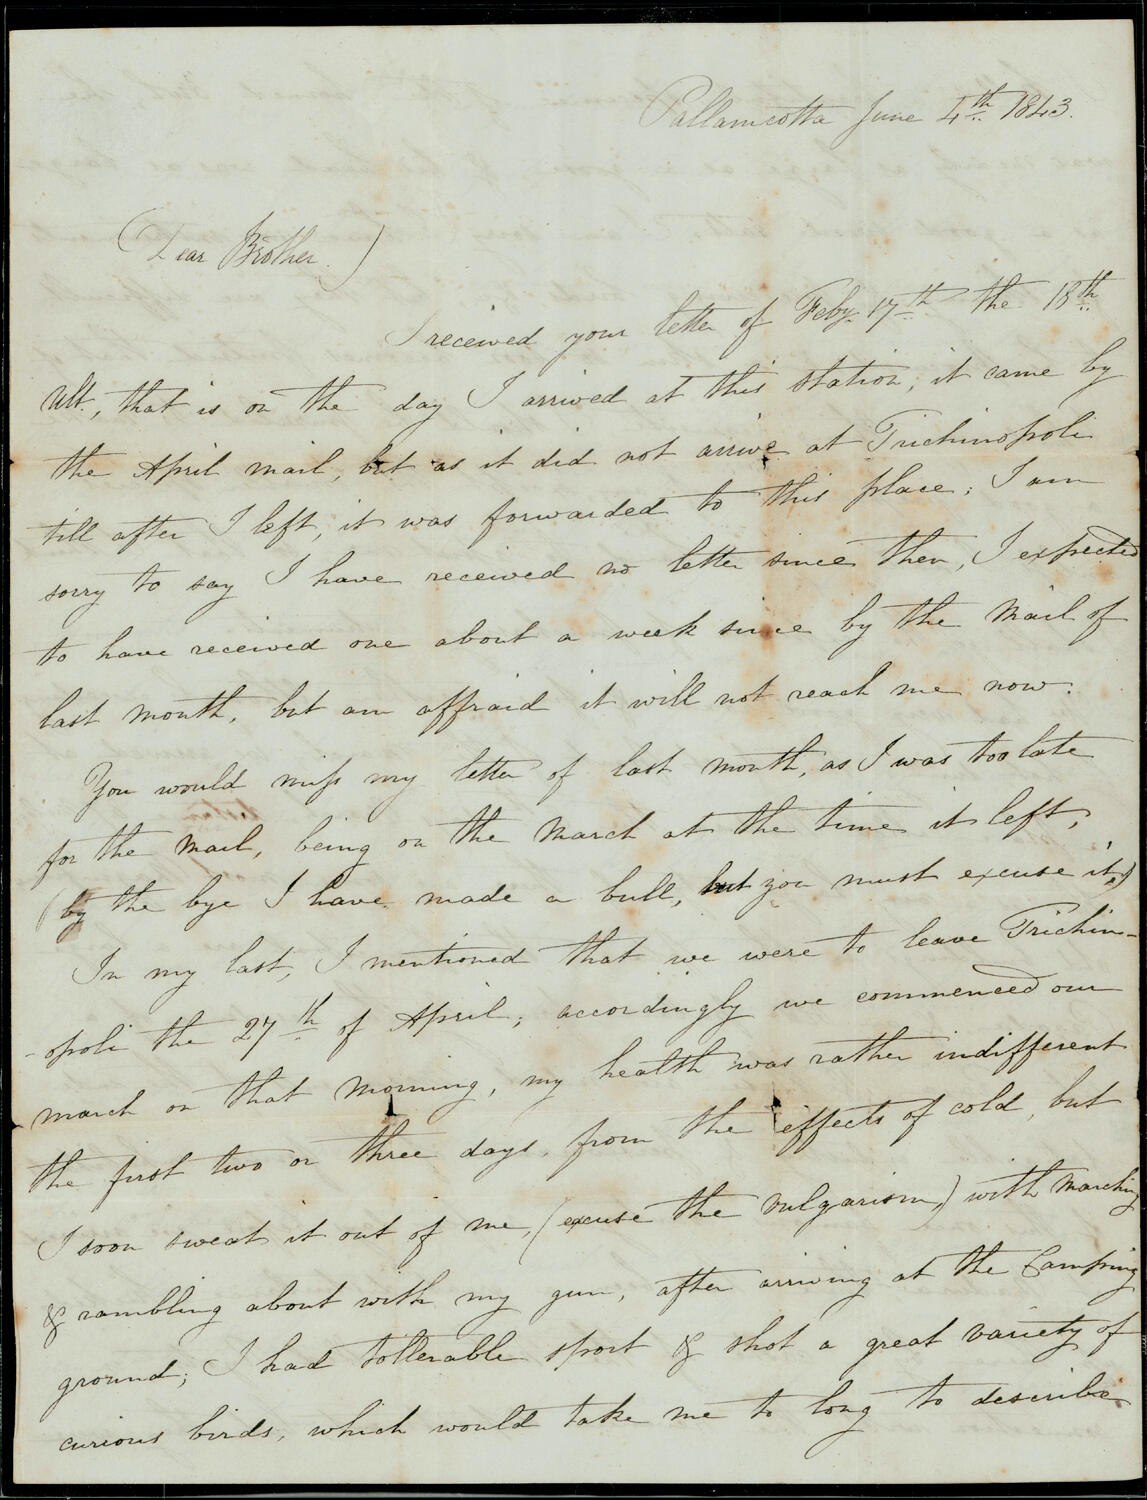 Pallamcotta June 4th 1843.
(Dear Brother.)
I received your letter of Feby. 17th the 18th
Ult., that is on the day I arrived at this station, it came by
the April mail, but as it did not arrive at Trichinopoli
till after I left, it was forwarded to this place; I am
sorry to say I have received no letter since then, I expected
to have received one about a week since by the Mail of
last month, but am affraid it will not reach me now.
You would miss my letter of last month, as I was too late
for the Mail, being on the March at the time it left,
(by the bye I have made a bull, but you must excuse it,)
In my last, I mentioned that we were to leave Trichin-
-opoli the 27th of April; accordingly we commenced our
march on that Morning, my health was rather indifferent
the first two or three days, from the effects of cold, but
I soon sweat it out of me, (excuse the vulgarism,) with Marching
& rambling about with my gun, after arriving at the Camping
ground; I had tollerable sport & shot a great variety of
curious birds, which would take me to long to describe